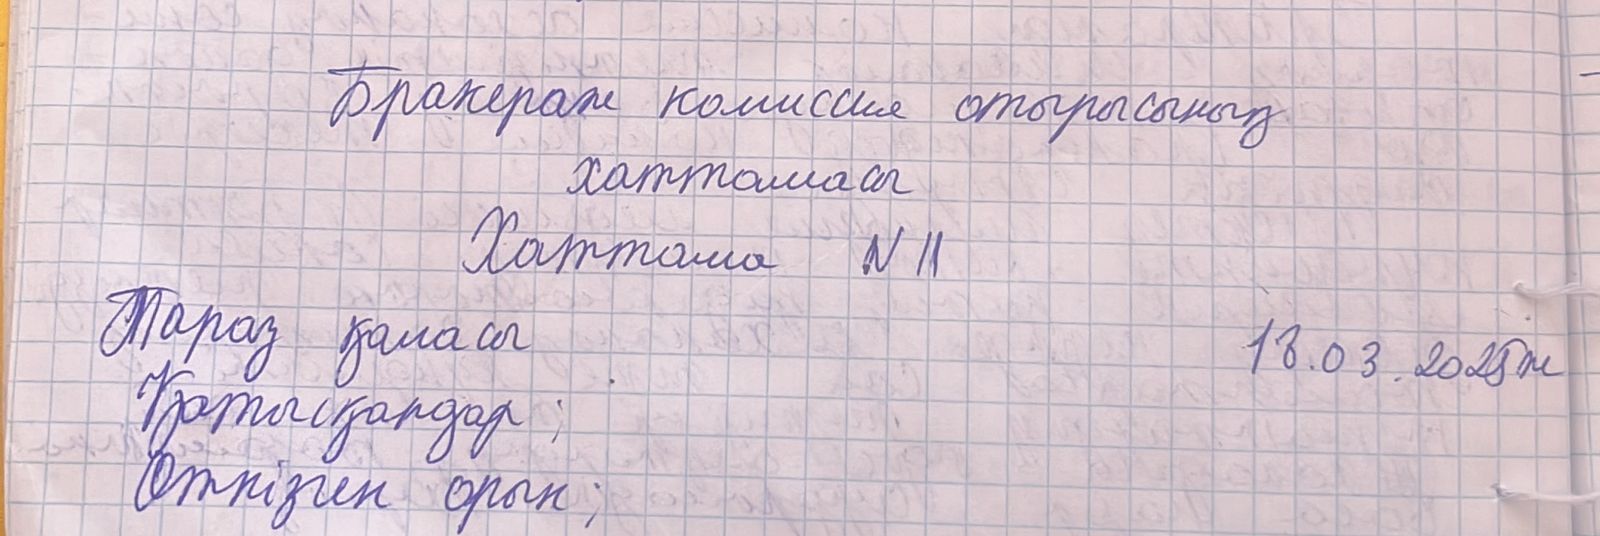 Бракераж комиссия отырысының
хаттамасы
Хаттама N 11
Тараз қаласы 18.03.2025ж
Қатысқандар;
Өткізген орын;